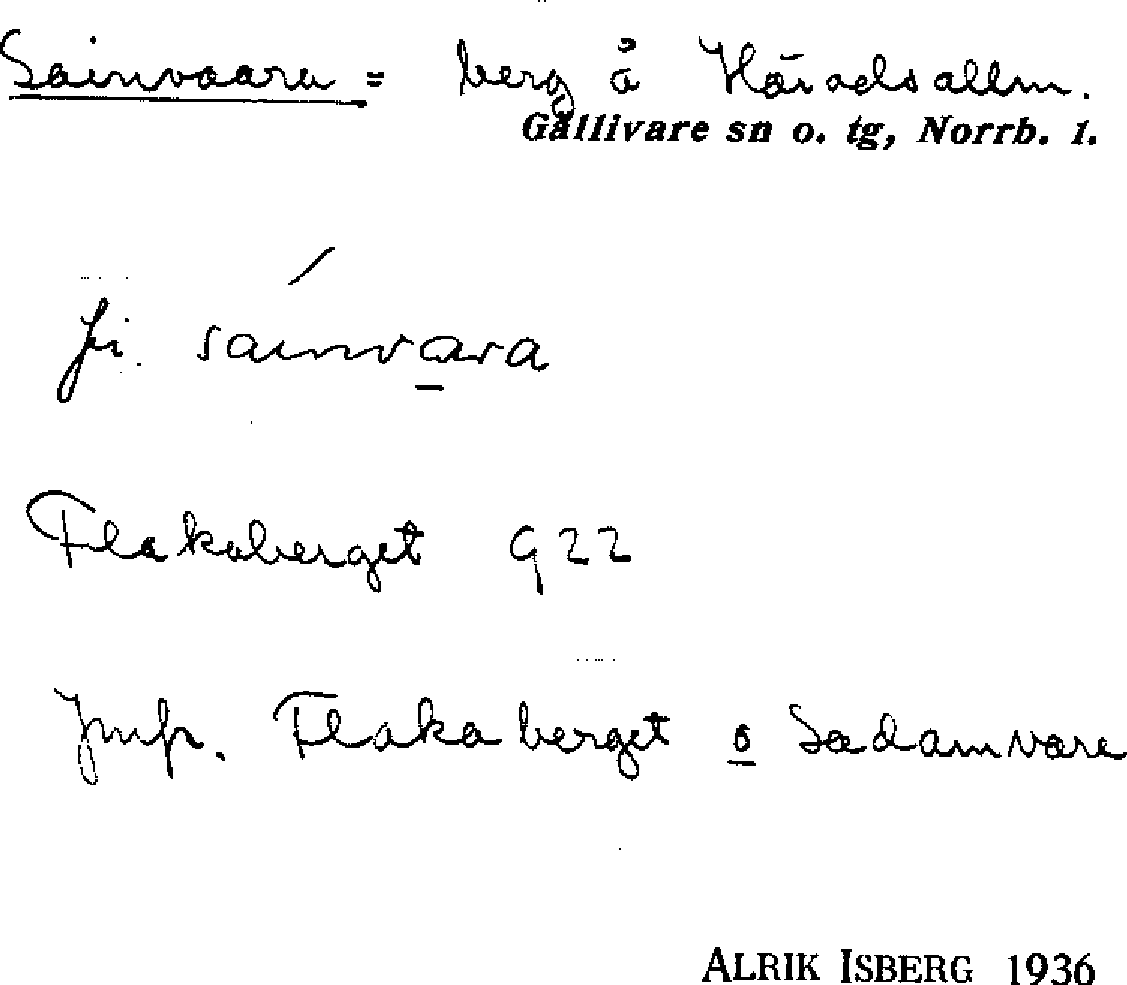 Sainvaara = berg å Häradsallm.
Gällivare sn o. tg, Norrb. l.
fi. sáinvara
Flakaberget 922
Jmfr. Flakaberget o Sadamvare
ALRIK ISBERG 1936